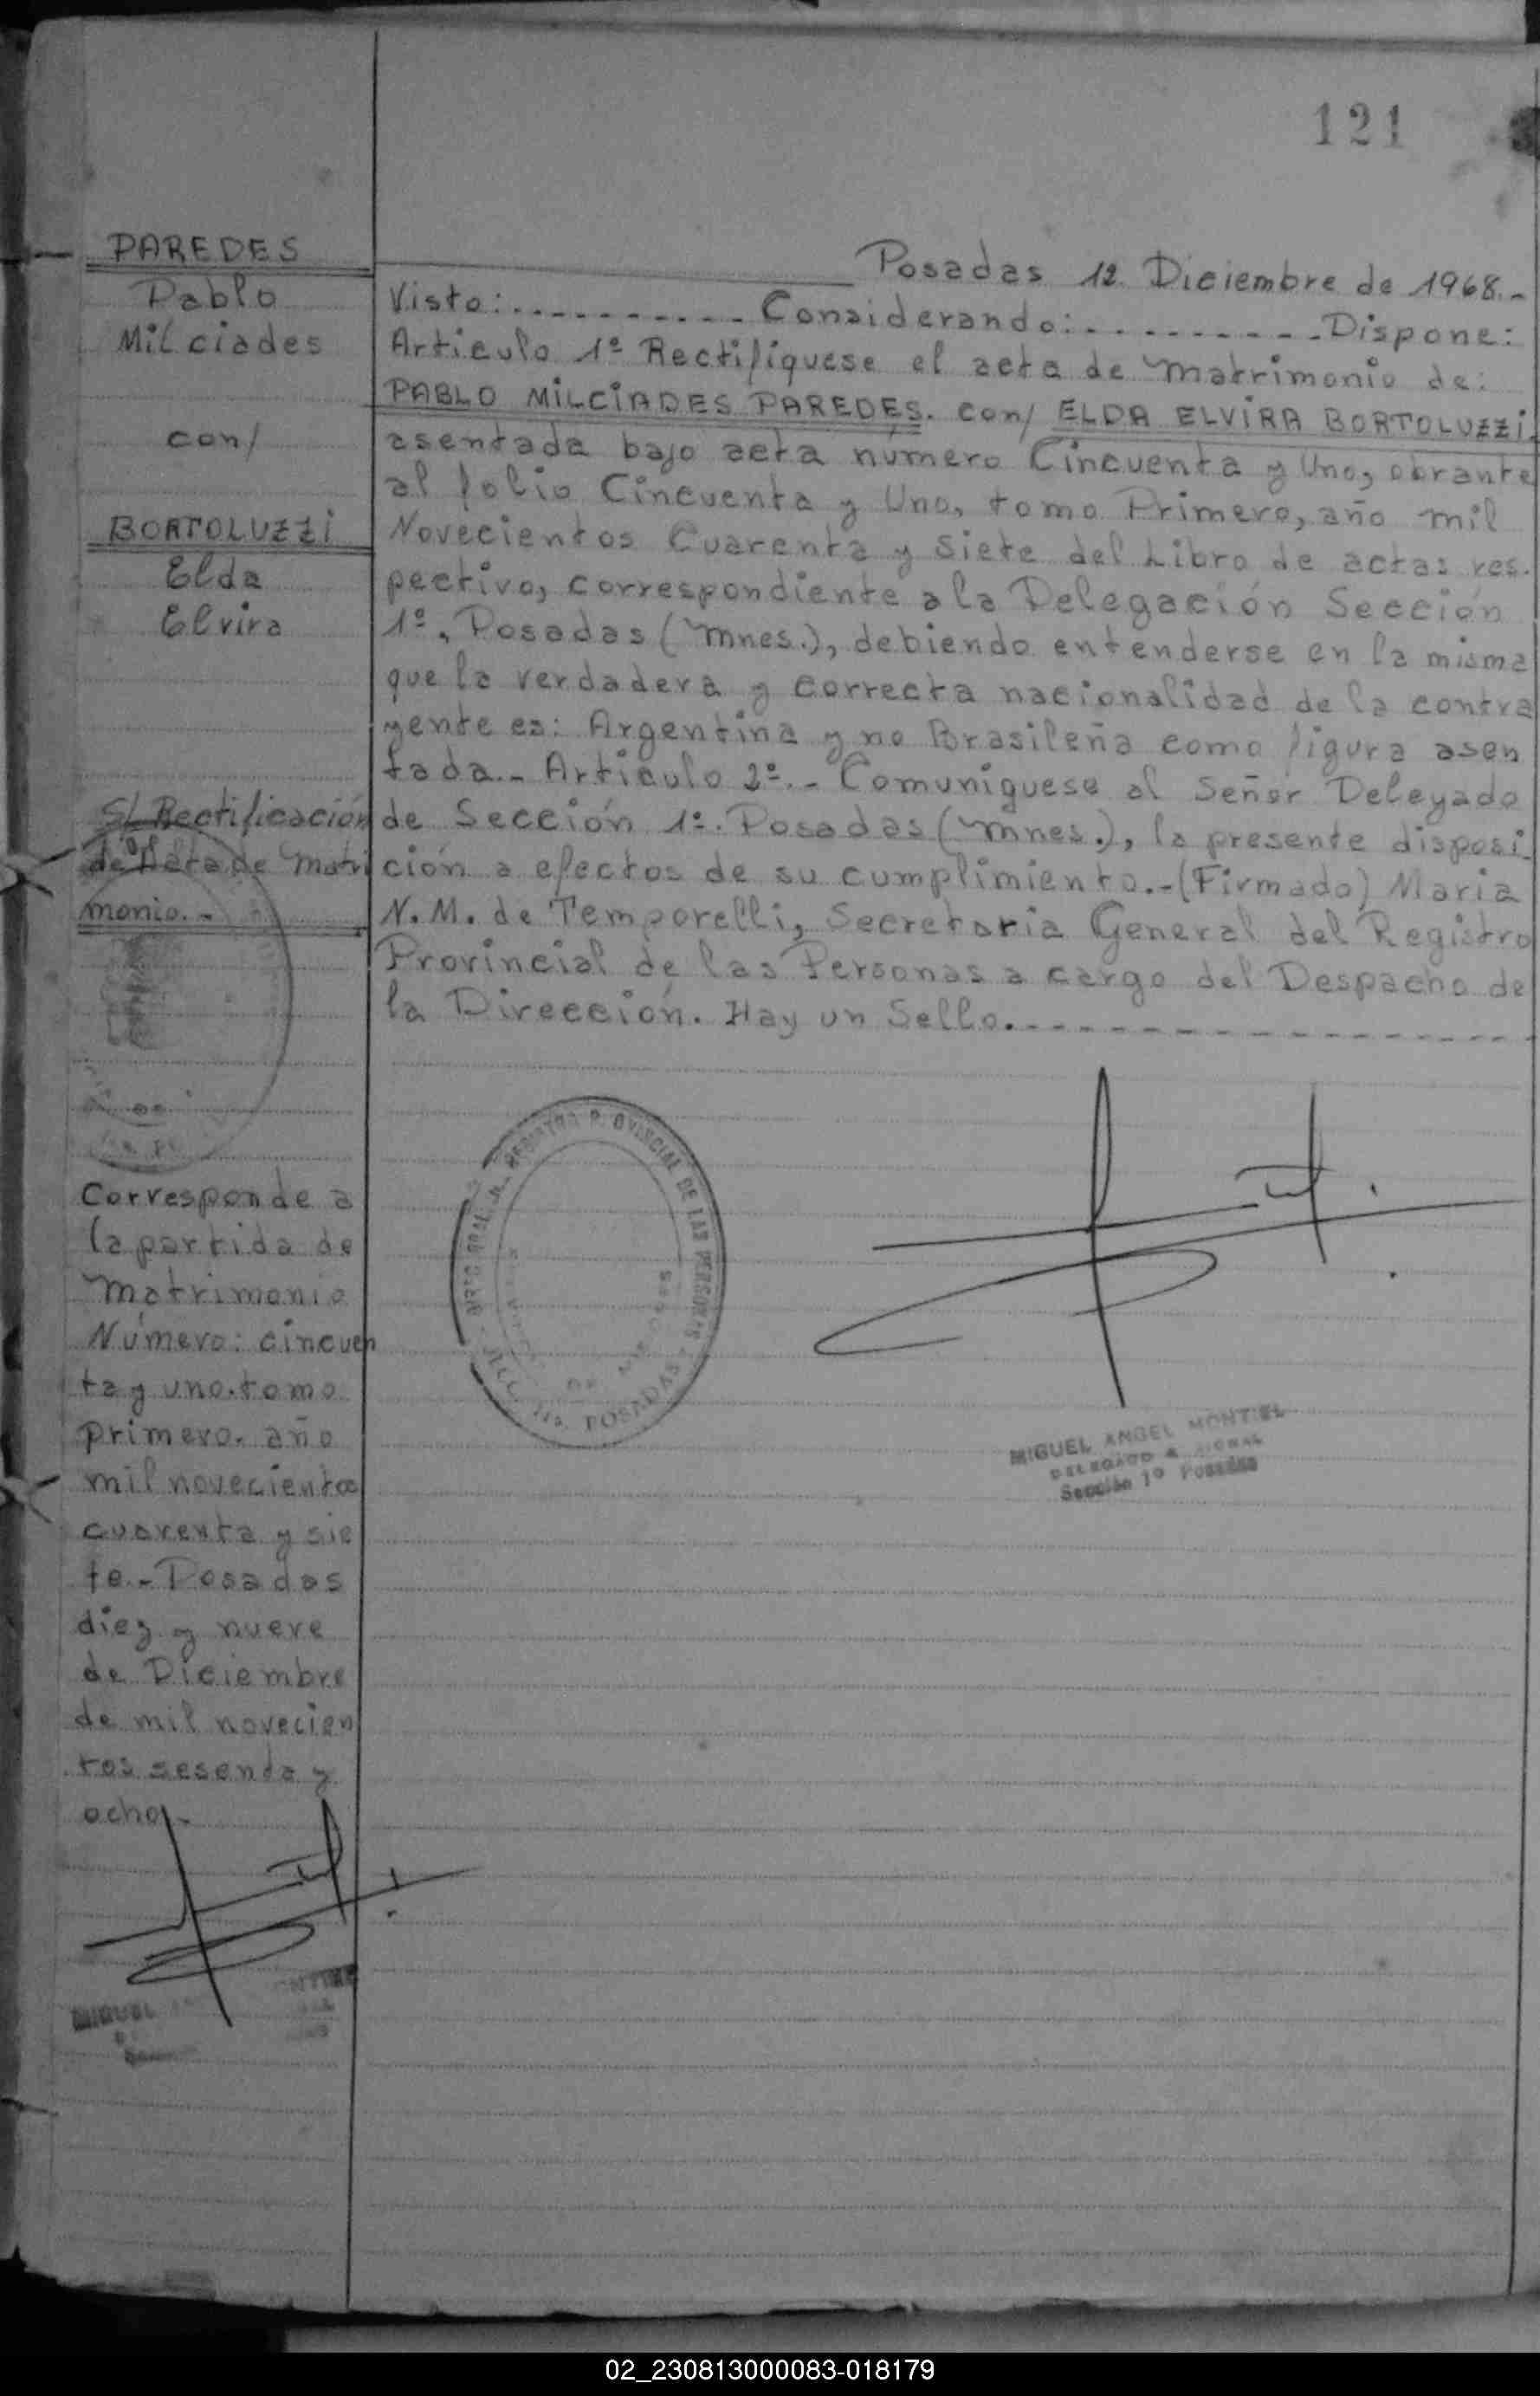 121
PAREDES
Pablo
Milciades
con/
BORTOLUZZI
Elda
Elvira
S/ Rectificación
de Acta de Matri
monio.-
Corresponde a
la partida de
Matrimonio
Número: cincuen
ta y uno. tomo
primero. año
mil novecientos
cuarenta y sie
te.- Posadas
diez y nueve
de Diciembre
de mil novecien
tos sesenta y
ocho.-
MIGUEL
Posadas 12 Diciembre de 1968.-
Visto:.......... Considerando:.......... Dispone:
Articulo 1º Rectifíquese el acta de Matrimonio de:
PABLO MILCIADES PAREDES. con/ ELDA ELVIRA BORTOLUZZI.
asentada bajo acta número Cincuenta y Uno, obrante
al folio Cincuenta y Uno, tomo Primero, año mil
Novecientos Cuarenta y Siete del Libro de actas res.
pectivo, correspondiente a la Delegación Sección
1º, Posadas (Mnes.), debiendo entenderse en la misma
que la verdadera y correcta nacionalidad de la contra
yente es: Argentina y no Brasileña como figura asen
tada.- Articulo 2º.- Comuníquese al Señor Delegado
de Sección 1º. Posadas (Mnes.), la presente disposi-
ción a efectos de su cumplimiento.- (Firmado) Maria
N. M. de Temporelli, Secretaria General del Registro
Provincial de las Personas a cargo del Despacho de
la Dirección. Hay un Sello.- - - - - - - - - - - - -
REGISTRO P OVINCIAL DE LAS PERSONAS
SECC. 1ra. POSADAS
DE MISIONES
MIGUEL ANGEL MONTIEL
DELEGADO
Sección 1º Posadas
02_230813000083-018179